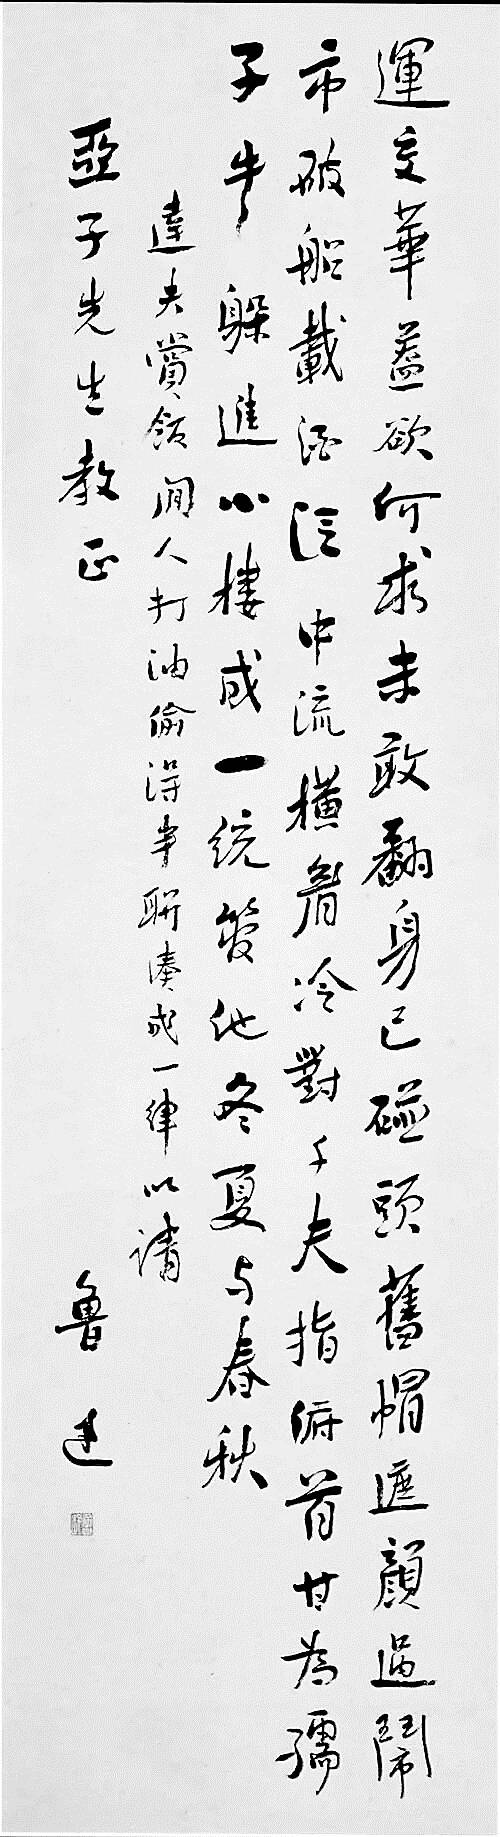 運交華蓋欲何求未敢翻身已碰頭舊帽遮顏過鬧
市破船載酒泛中流橫眉冷對千夫指俯首甘為孺
子牛躲進小樓成一統管他冬夏与春秋
達夫賞飯閒人打油偷得半聯湊成一律以請
亞子先生教正
魯迅